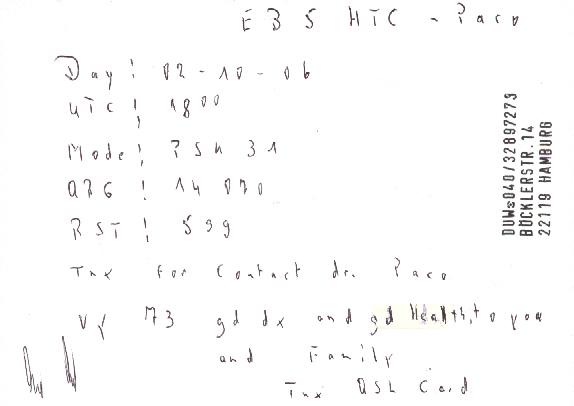 EB5HTC - Paco
Day: 02-10-06
UTC: 1800
Mode: PSK 31
QRG: 14 070
RST: 599
Tnx for Contact dr. Paco
Vy 73 gd dx and gd Health, to you
and Family
Tnx QSL Card
DUWs040/32897273
BÜCKLERSTR.14
22119 HAMBURG